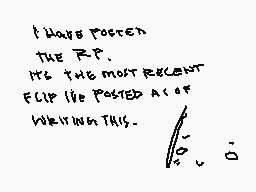 I HAVE POSTED
THE RP.
ITS THE MOST RECENT
FLIP IVE POSTED AS OF
WRITING THIS.